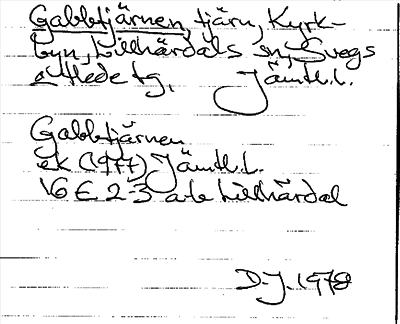 Gabbtjärnen, tjärn, Kyrk-
byn, Lillhärdals sn, Svegs
tg, Jämtl.l.
Gabbtjärnen
ek (1977) Jämtl.l.
16 E 2-3 a-b Lillhärdal
D.J. 1978